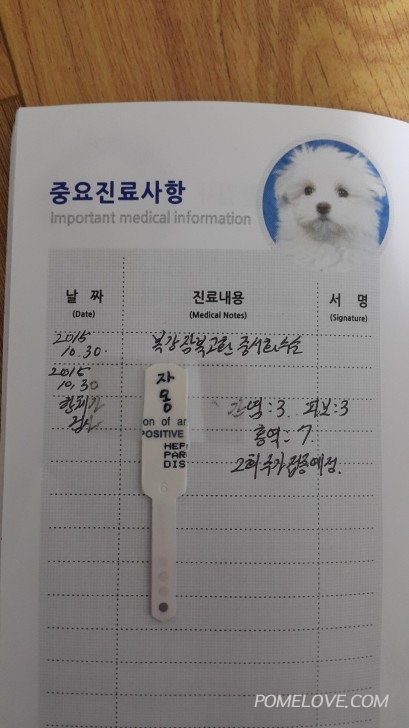 중요진료사항
Important medical information
날 짜 진료내용 서 명
(Date) (Medical Notes) (Signature)
2015
10.30. 복강잠복고환 중성화수술
2015
10.30
항체가
검사
자
몽
on of an
POSITIVE
HEP
PAR
DIS
간염:3. 파보:3
홍역:7.
2회 추가접종예정.
POMELOVE.COM